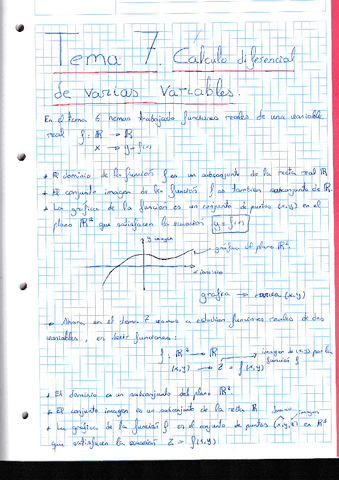 Tema 7. Cálculo diferencial
de varias variables.
En el tema 6 hemos trabajado funciones reales de una variable
real f: R → R
x → y = f(x)
* El dominio de la función f es un subconjunto de la recta real R
* El conjunto imagen de la función f es también subconjunto de R.
* La gráfica de la función es un conjunto de puntos (x,y) en el
plano R² que satisfacen la ecuación y = f(x)
y imagen
gráfica del plano R²
x dominio
gráfica → (x,y)
* Ahora en el tema 7 vamos a estudiar funciones reales de dos
variables, es decir funciones:
f: R² → R
imagen de (x,y) por la
función f
(x,y) → z = f(x,y)
* El dominio es un subconjunto del plano R²
* El conjunto imagen es un subconjunto de la recta R
imagen
* La gráfica de la función f es el conjunto de puntos (x,y,z) en R³
que satisfacen la ecuación z = f(x,y)